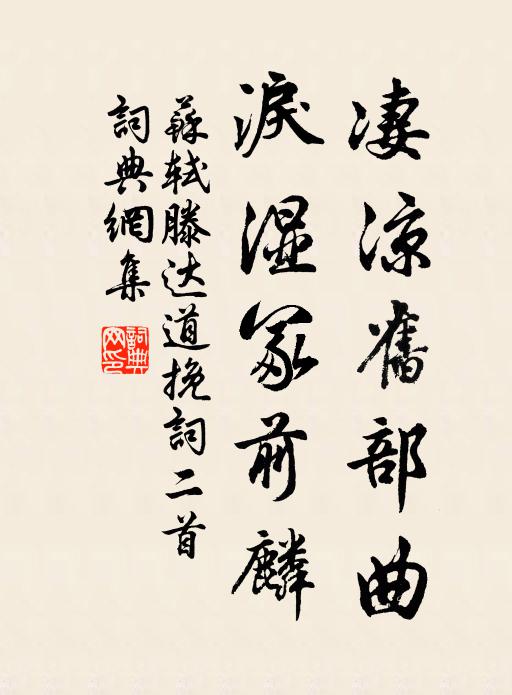 凄涼舊部曲
淚濕冢前麟
蘇軾滕达道挽詞二首
詞典網集
詞典网印